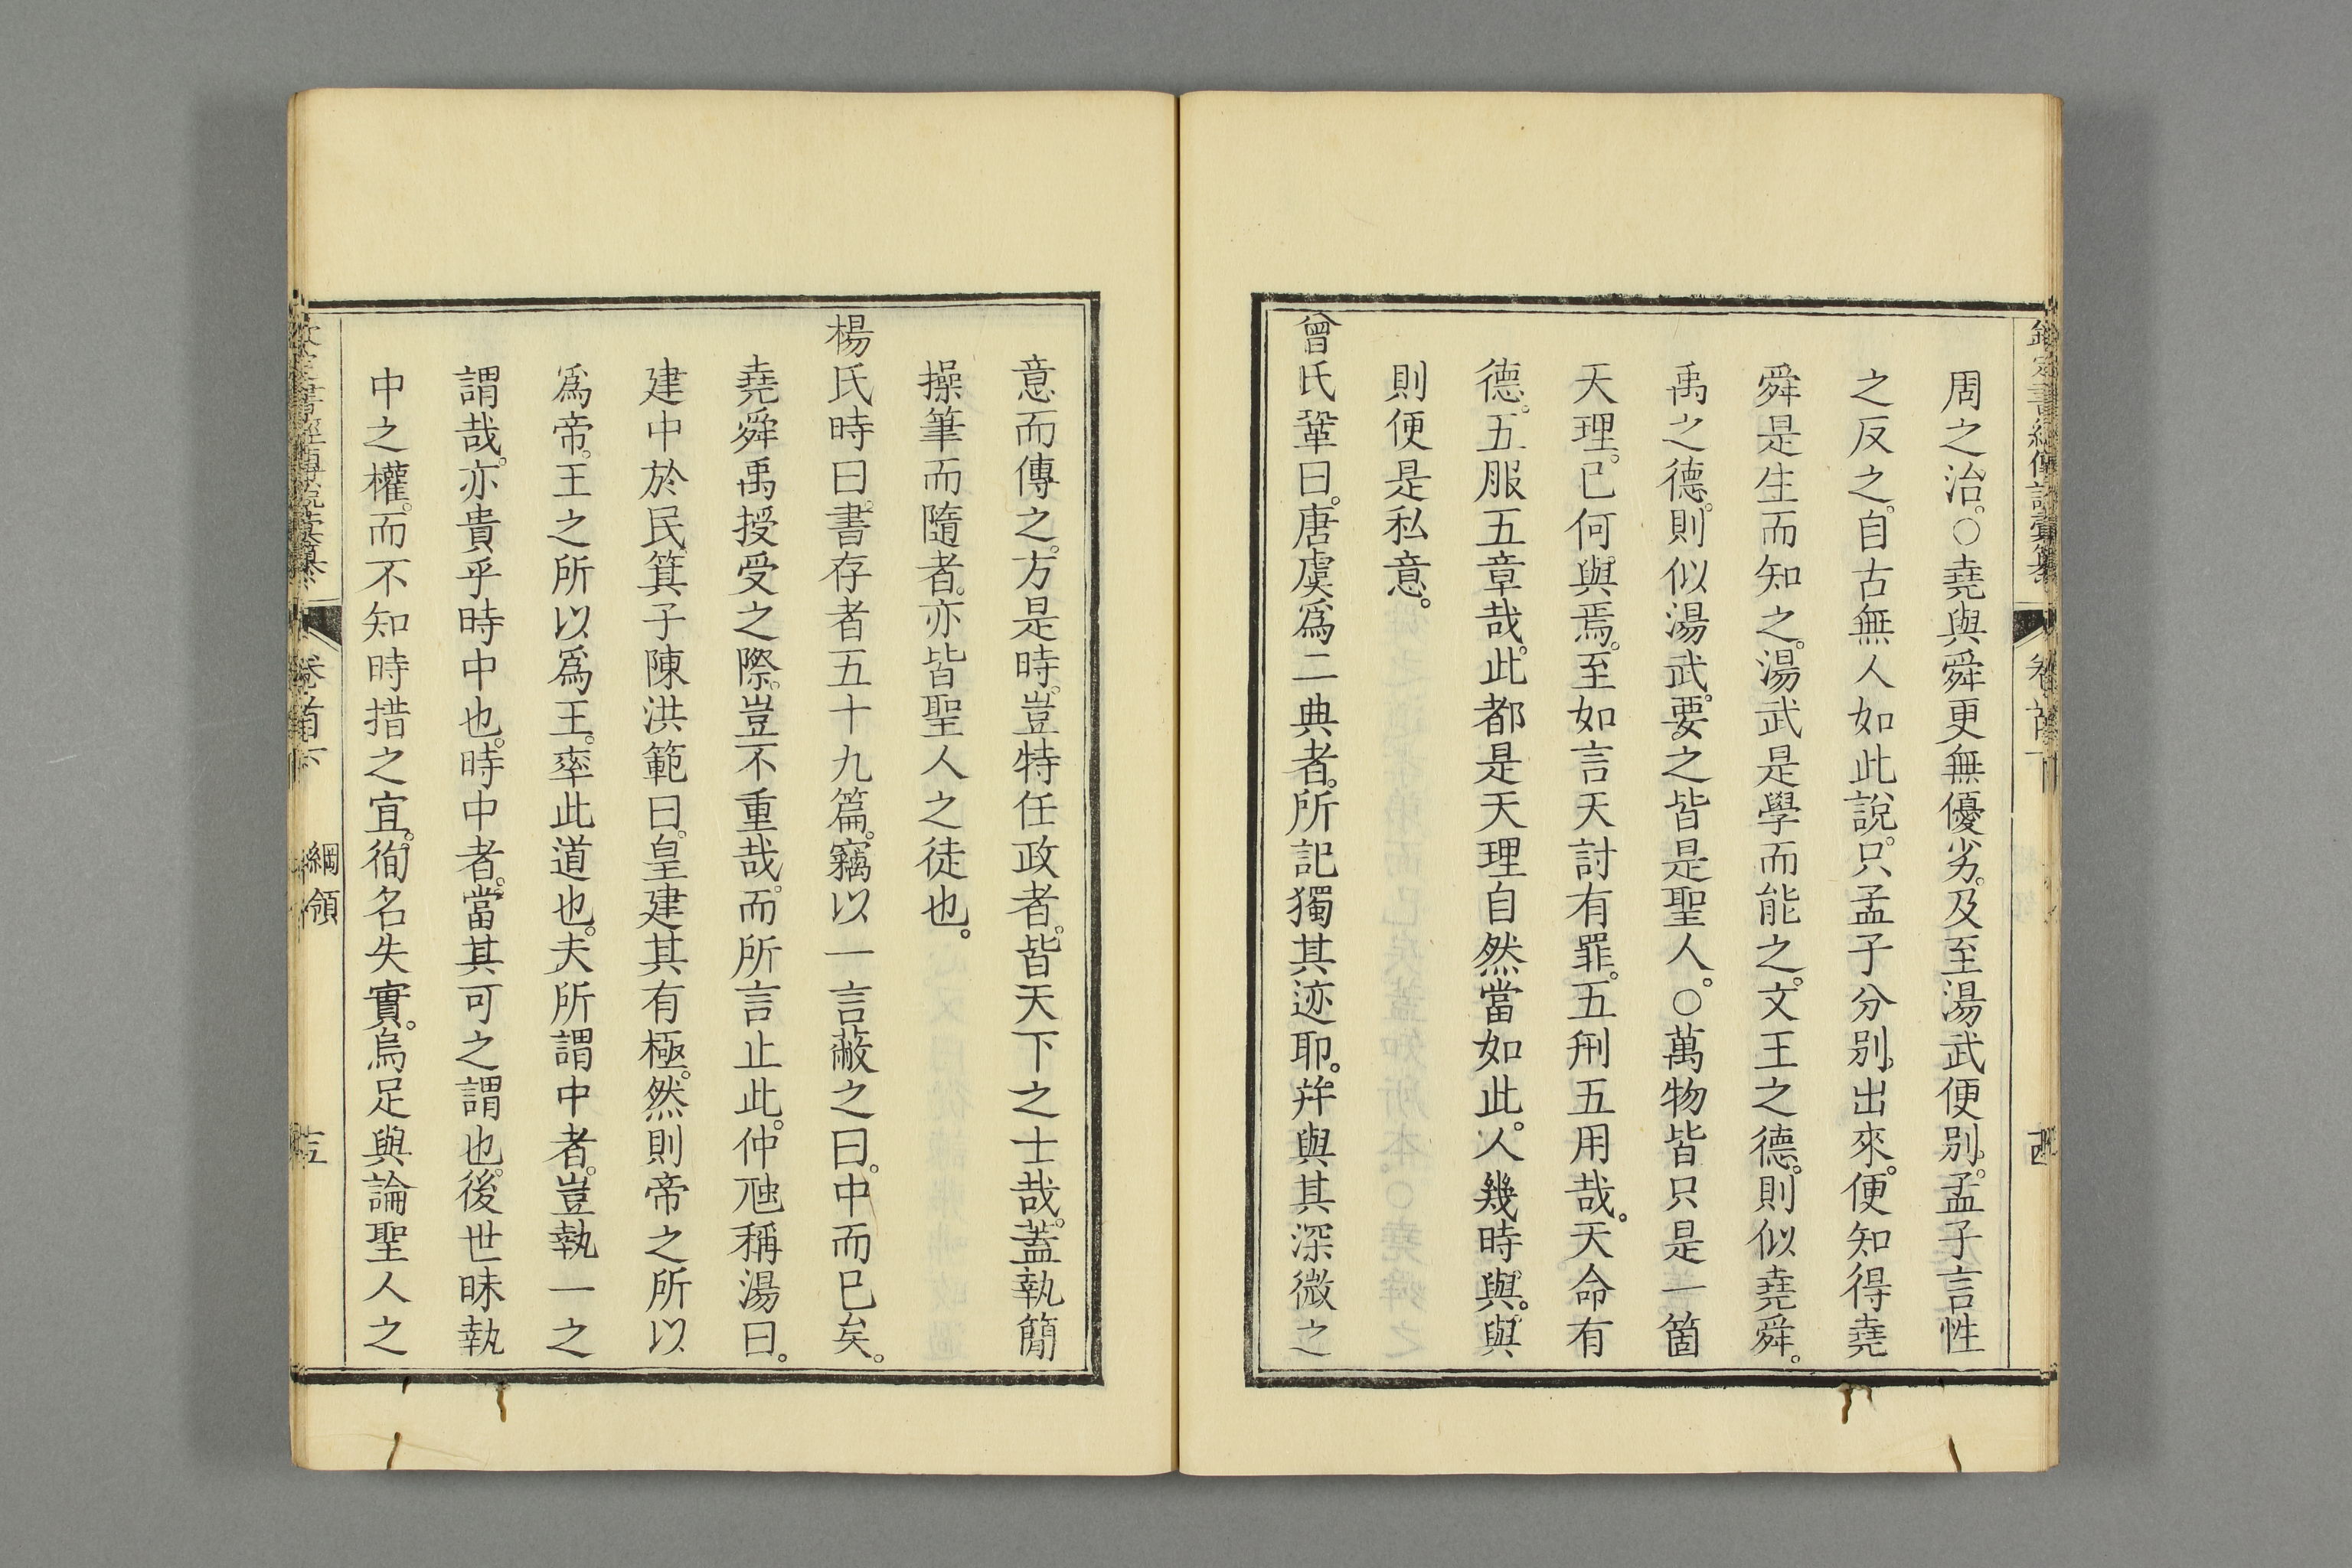 欽定書經傳說彙纂 卷首下
周之治。○堯與舜更無優劣。及至湯武便別。孟子言性
之反之。自古無人如此說。只孟子分別出來。便知得堯
舜是生而知之。湯武是學而能之。文王之德。則似堯舜。
禹之德。則似湯武。要之皆是聖人。○萬物皆只是一箇
天理。已何與焉。至如言天討有罪。五刑五用哉。天命有
德。五服五章哉。此都是天理自然當如此。人幾時與。與
則便是私意。
曾氏鞏曰。唐虞爲二典者。所記獨其迹耶。并與其深微之
意而傳之。方是時。豈特任政者。皆天下之士哉。蓋執簡
操筆而隨者。亦皆聖人之徒也。
楊氏時曰。書存者五十九篇。竊以一言蔽之曰。中而已矣。
堯舜禹授受之際。豈不重哉。而所言止此。仲虺稱湯曰。
建中於民。箕子陳洪範曰。皇建其有極。然則帝之所以
爲帝。王之所以爲王。率此道也。夫所謂中者。豈執一之
謂哉。亦貴乎時中也。時中者。當其可之謂也。後世昧執
中之權。而不知時措之宜。徇名失實。烏足與論聖人之
欽定書經傳說彙纂 卷首下 綱領